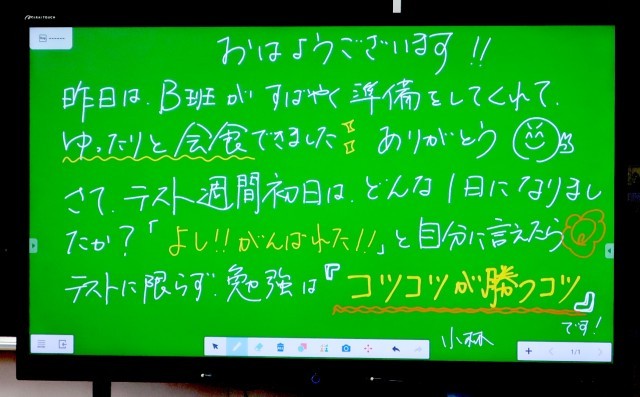 おはようございます!!
昨日は、B班がすばやく準備をしてくれて、
ゆったりと会食できました!! ありがとう
さて、テスト週間初日は、どんな1日になりまし
たか?「よし!!がんばれた!!」と自分に言えたら
テストに限らず、勉強は『コツコツが勝つコツ』
です!
小林
1/1